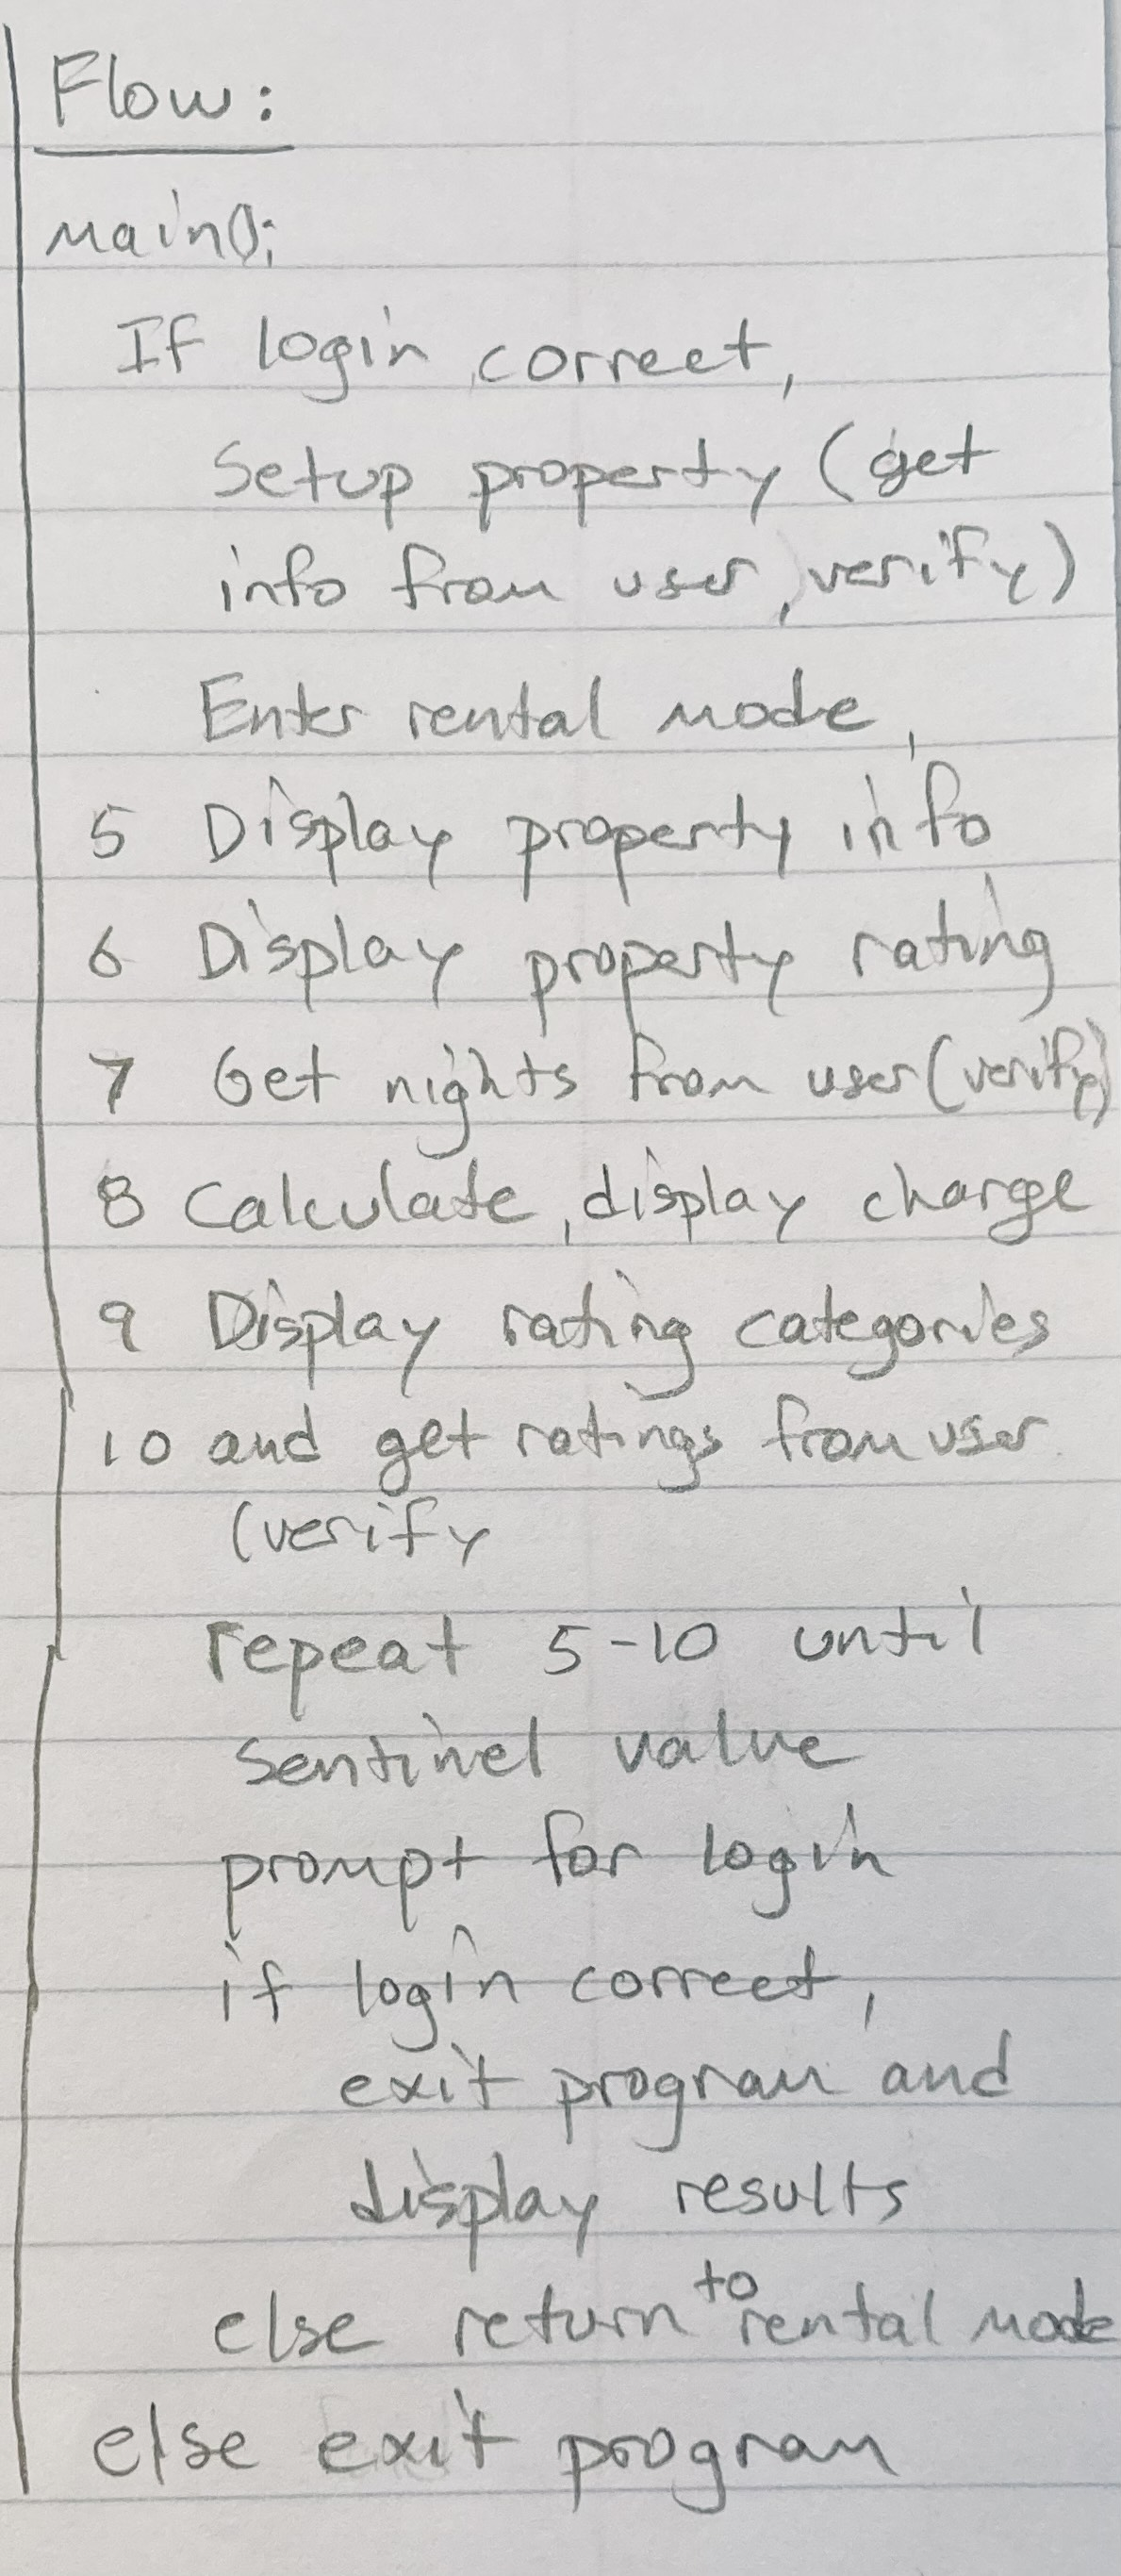 Flow:
main();
If login correct,
Setup property (get
info from user, verify)
Enter rental mode,
5 Display property info
6 Display property rating
7 Get nights from user (verify)
8 Calculate, display charge
9 Display rating categories
10 and get ratings from user
(verify
repeat 5-10 until
sentinel value
prompt for login
if login correct,
exit program and
display results
else return to rental mode
else exit program